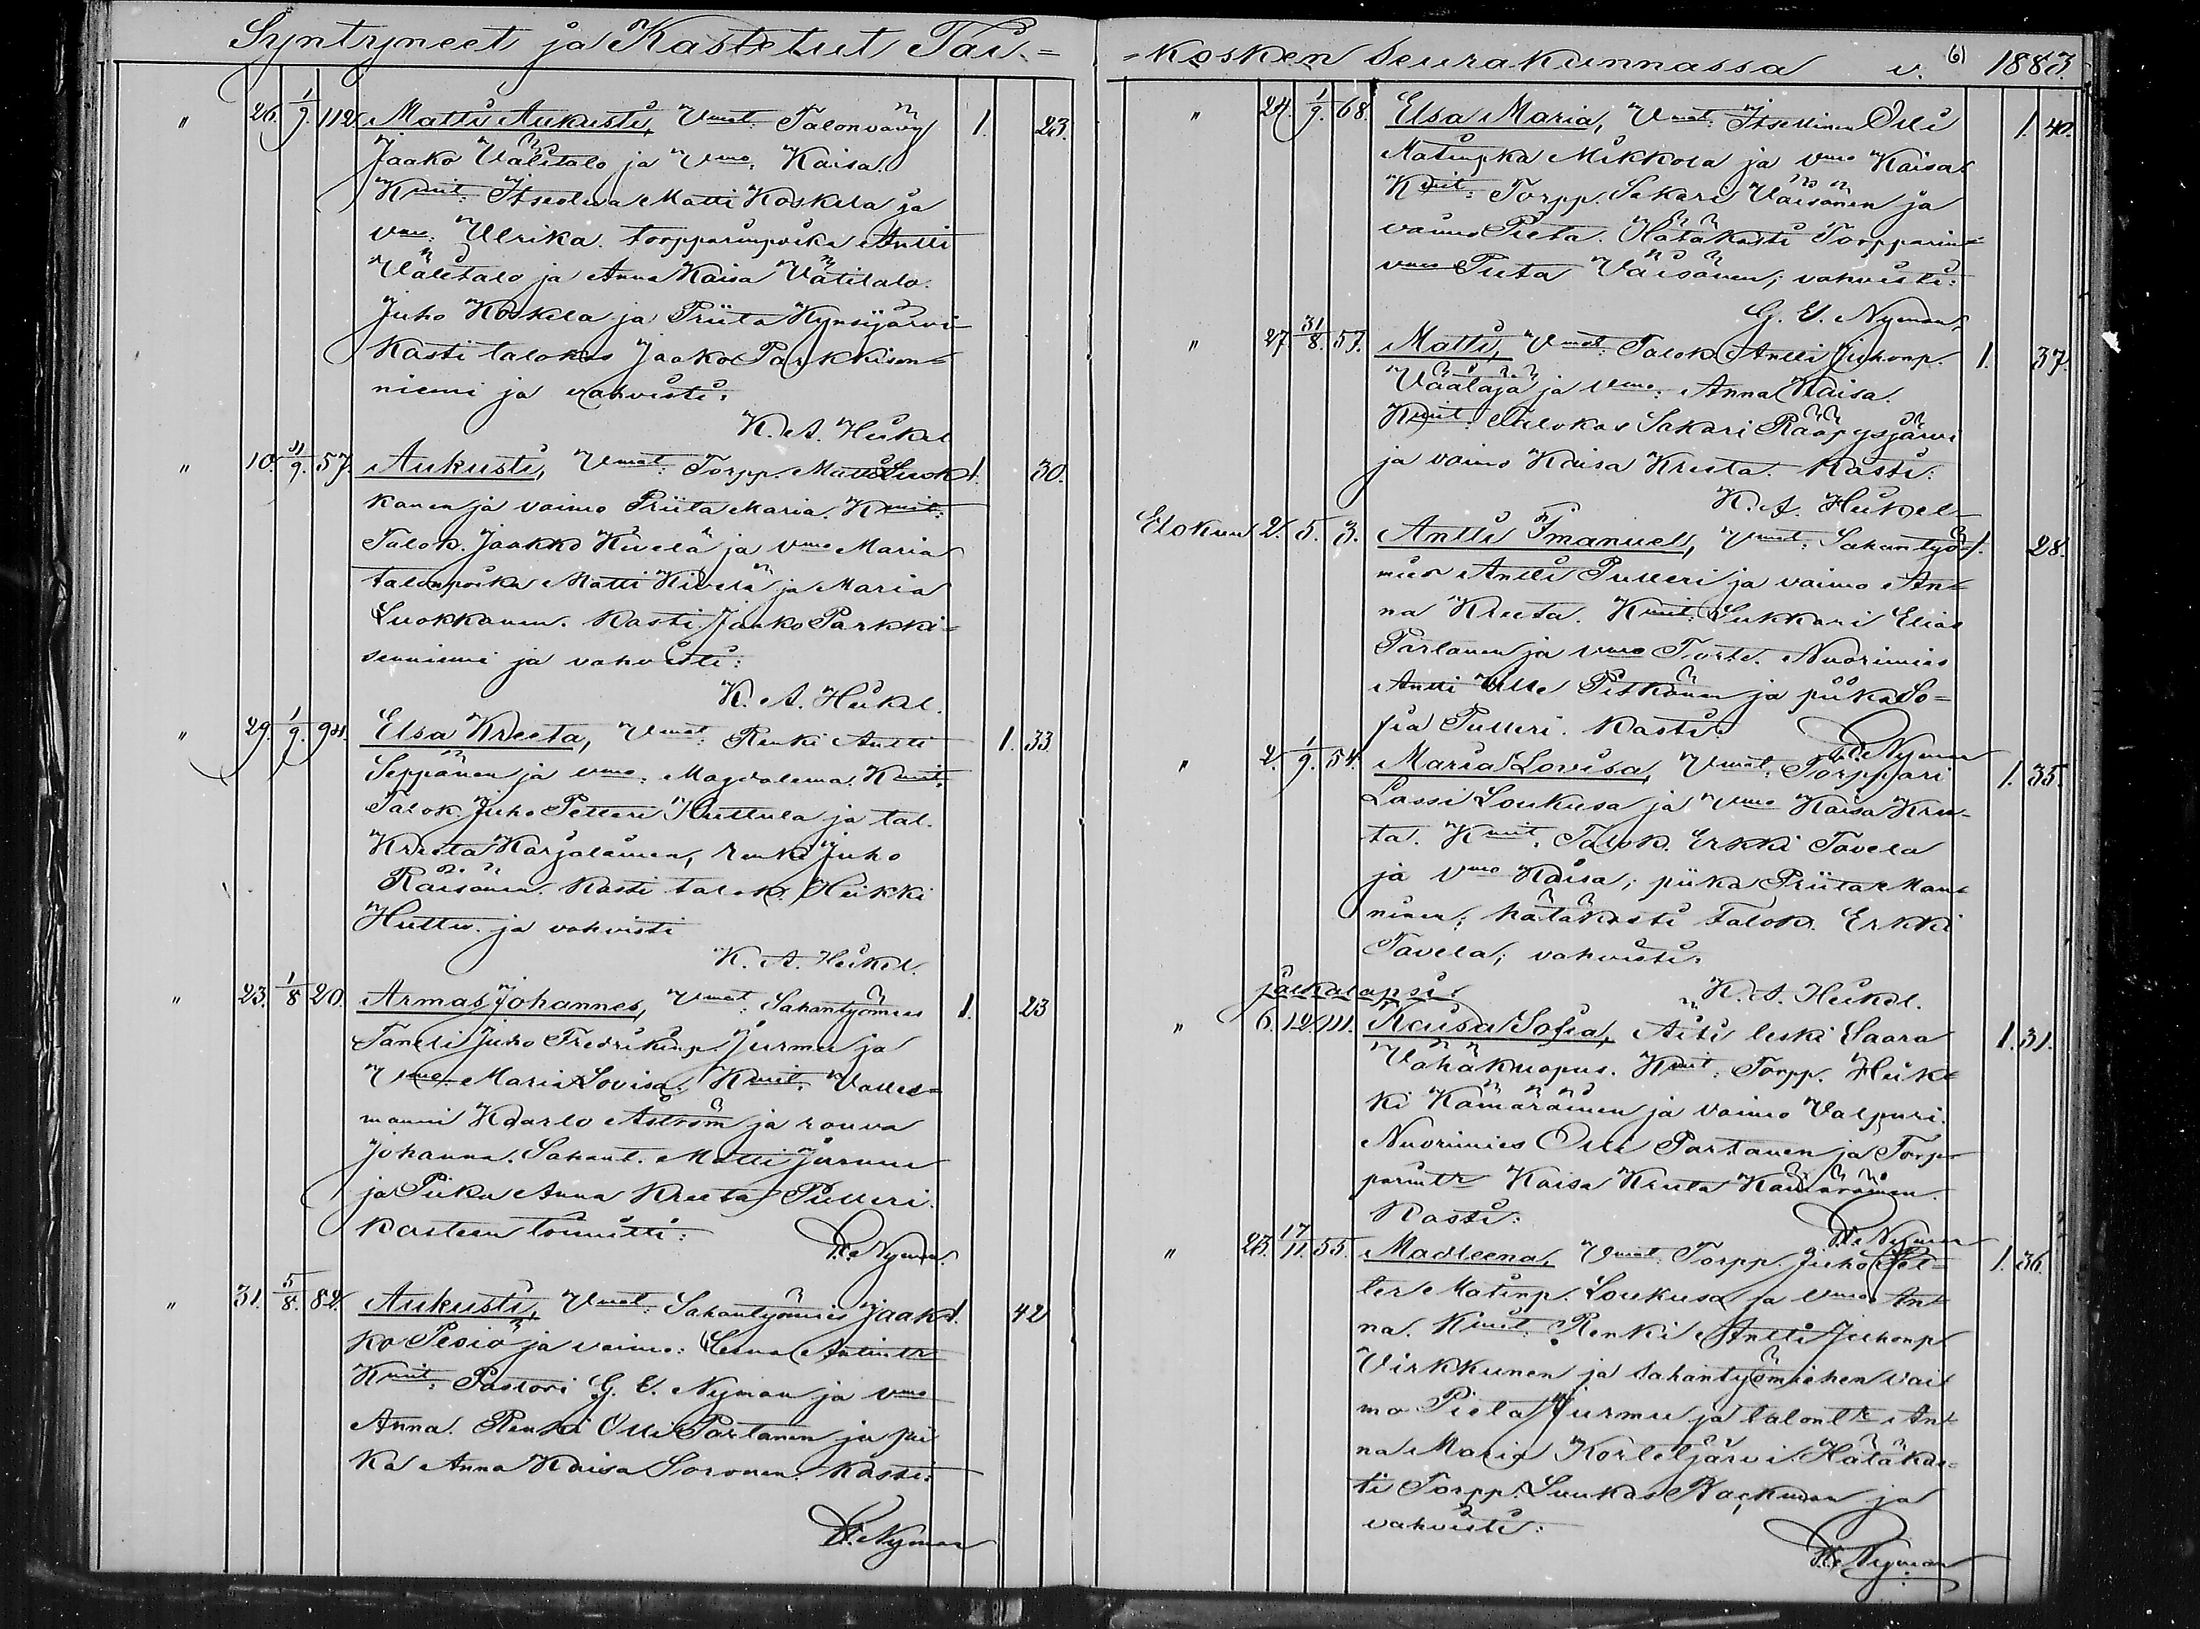 Syntyneet ja Kastetut Tai=
" 26. 1/9. 112 Matti Aukusti, Vmat: Talonvävy 1. 23.
Jaako Välitalo ja Vmo. Kaisa.
Kmit. Itsellisä Matti Koskela ja
vmo. Ulrika. torpparinpoika Antti
Välitalo ja Anna Kaisa Välitalo.
Juho Koskela ja Priita Kynsijärvi
Kasti talokas Jaako Parkkisen=
niemi ja vahvisti:
K. A. Heikel
" 10. 11/9. 57. Aukusti, Vmat: Torpp. Matti Luok 1. 30.
kanen ja vaimo Priita Maria. Kmit:
Talok. Jaakko Kivelä ja Vmo Maria
talonpoika Matti Kivelä ja Maria
Luokkanen. Kasti Jaako Parkki=
senniemi ja vahvisti:
K. A. Heikel.
" 29. 1/9. 94. Elsa Kreeta, Vmat: Renki Antti 1. 33.
Seppänen ja vmo. Magdalema. Kmit.
Talok. Juho Petteri Kuttula ja tal.
Kreeta Karjalainen, renki Juho
Räisänen. Kasti talok. Heikki
Huttu. ja vahvisti
K. A. Heikel.
" 23. 1/8 20. Armas Johannes, Vmat: Sahantyömies 1. 23
Taneli Juho Fredrikinp. Jurmu ja
Vmo. Maria Lovisa. Kmit. Valles=
manni Kaarlo Åström ja rouva
Johanna. Sahant. Matti Jurmu
ja Piika Anna Kreeta Pulleri.
Kasteen toimitti:
G. E. Nyman.
" 31. 5/8. 82. Aukusti, Vmat: Sahantyömies Jaak 1. 42
ko Pesiö ja vaimo: Leena Antintr
Kmit: Pastori G. E. Nyman ja vmo
Anna. Renki Olli Partanen ja pii
ka Anna Kaisa Soronen. Kasti:
G. E. Nyman
=kosken Seurakunnassa v. (6) 1883.
" 24. 1/9. 68. Elsa Maria, Vmat: Itsellinen Olli 1. 40.
Matinpka Mikkola ja vmo Kaisa
Kmit: Torpp. Sakari Väisänen ja
vaimo Pieta. Hätäkasti Torpparin=
vmo Pieta Väisänen; vahvisti:
G. E. Nyman
" 27. 31/8. 57. Matti, Vmat: Talok. Antti Juhonp. 1. 37.
Väätäjä ja vmo: Anna Kaisa.
Kmit: Talokas Sakari Rääpysjärvi
ja vaimo Kaisa Kreeta. Kasti:
K. A. Heikel
Elokuu 2. 5. 3. Antti Imanuel, Vmat: Sahantyö= 1. 28.
mies Antti Pulleri ja vaimo An=
na Kreeta. Kmit. Lukkari Elias
Partanen ja vmo Torte. Nuorimies
Antti Ulle Pitkänen ja piika So=
fia Pulleri. Kasti:
G. E. Nyman
" 2. 1/9. 54. Maria Lovisa, Vmat: Torppari 1. 35.
Lassi Loukusa ja Vmo Kaisa Kree-
ta. Kmit. Talok. Erkki Tavela
ja vmo Kaisa; piika Priita Man=
ninen; hätäkasti Talok. Erkki
Tavela; vahvisti.
K. A. Heikel.
jälkalapsi
" 6. 12. 111. Kaisa Sofia, Äiti leski Saara 1. 31.
Vähäkuopus. Kmit: Torpp. Heik=
ki Kämäräinen ja vaimo Valpuri.
Nuorimies Olli Partanen ja Torp=
parintr Kaisa Kreeta Kämäräinen.
Kasti:
G. E. Nyman
" 25. 17/11. 55. Madleena, Vmat: Torpp. Juho Pet= 1. 36.
ter Matinp. Loukusa ja vmo. An=
na. Kmit: Renki Antti Juhonp
Virkkunen ja sahantyömiehen vai
mo Pieta Jurmu ja talontr An=
na Maria Korteljärvi. Hätäkas=
ti Torpp. Luukas Packman ja
vahvisti:
G. E. Nyman